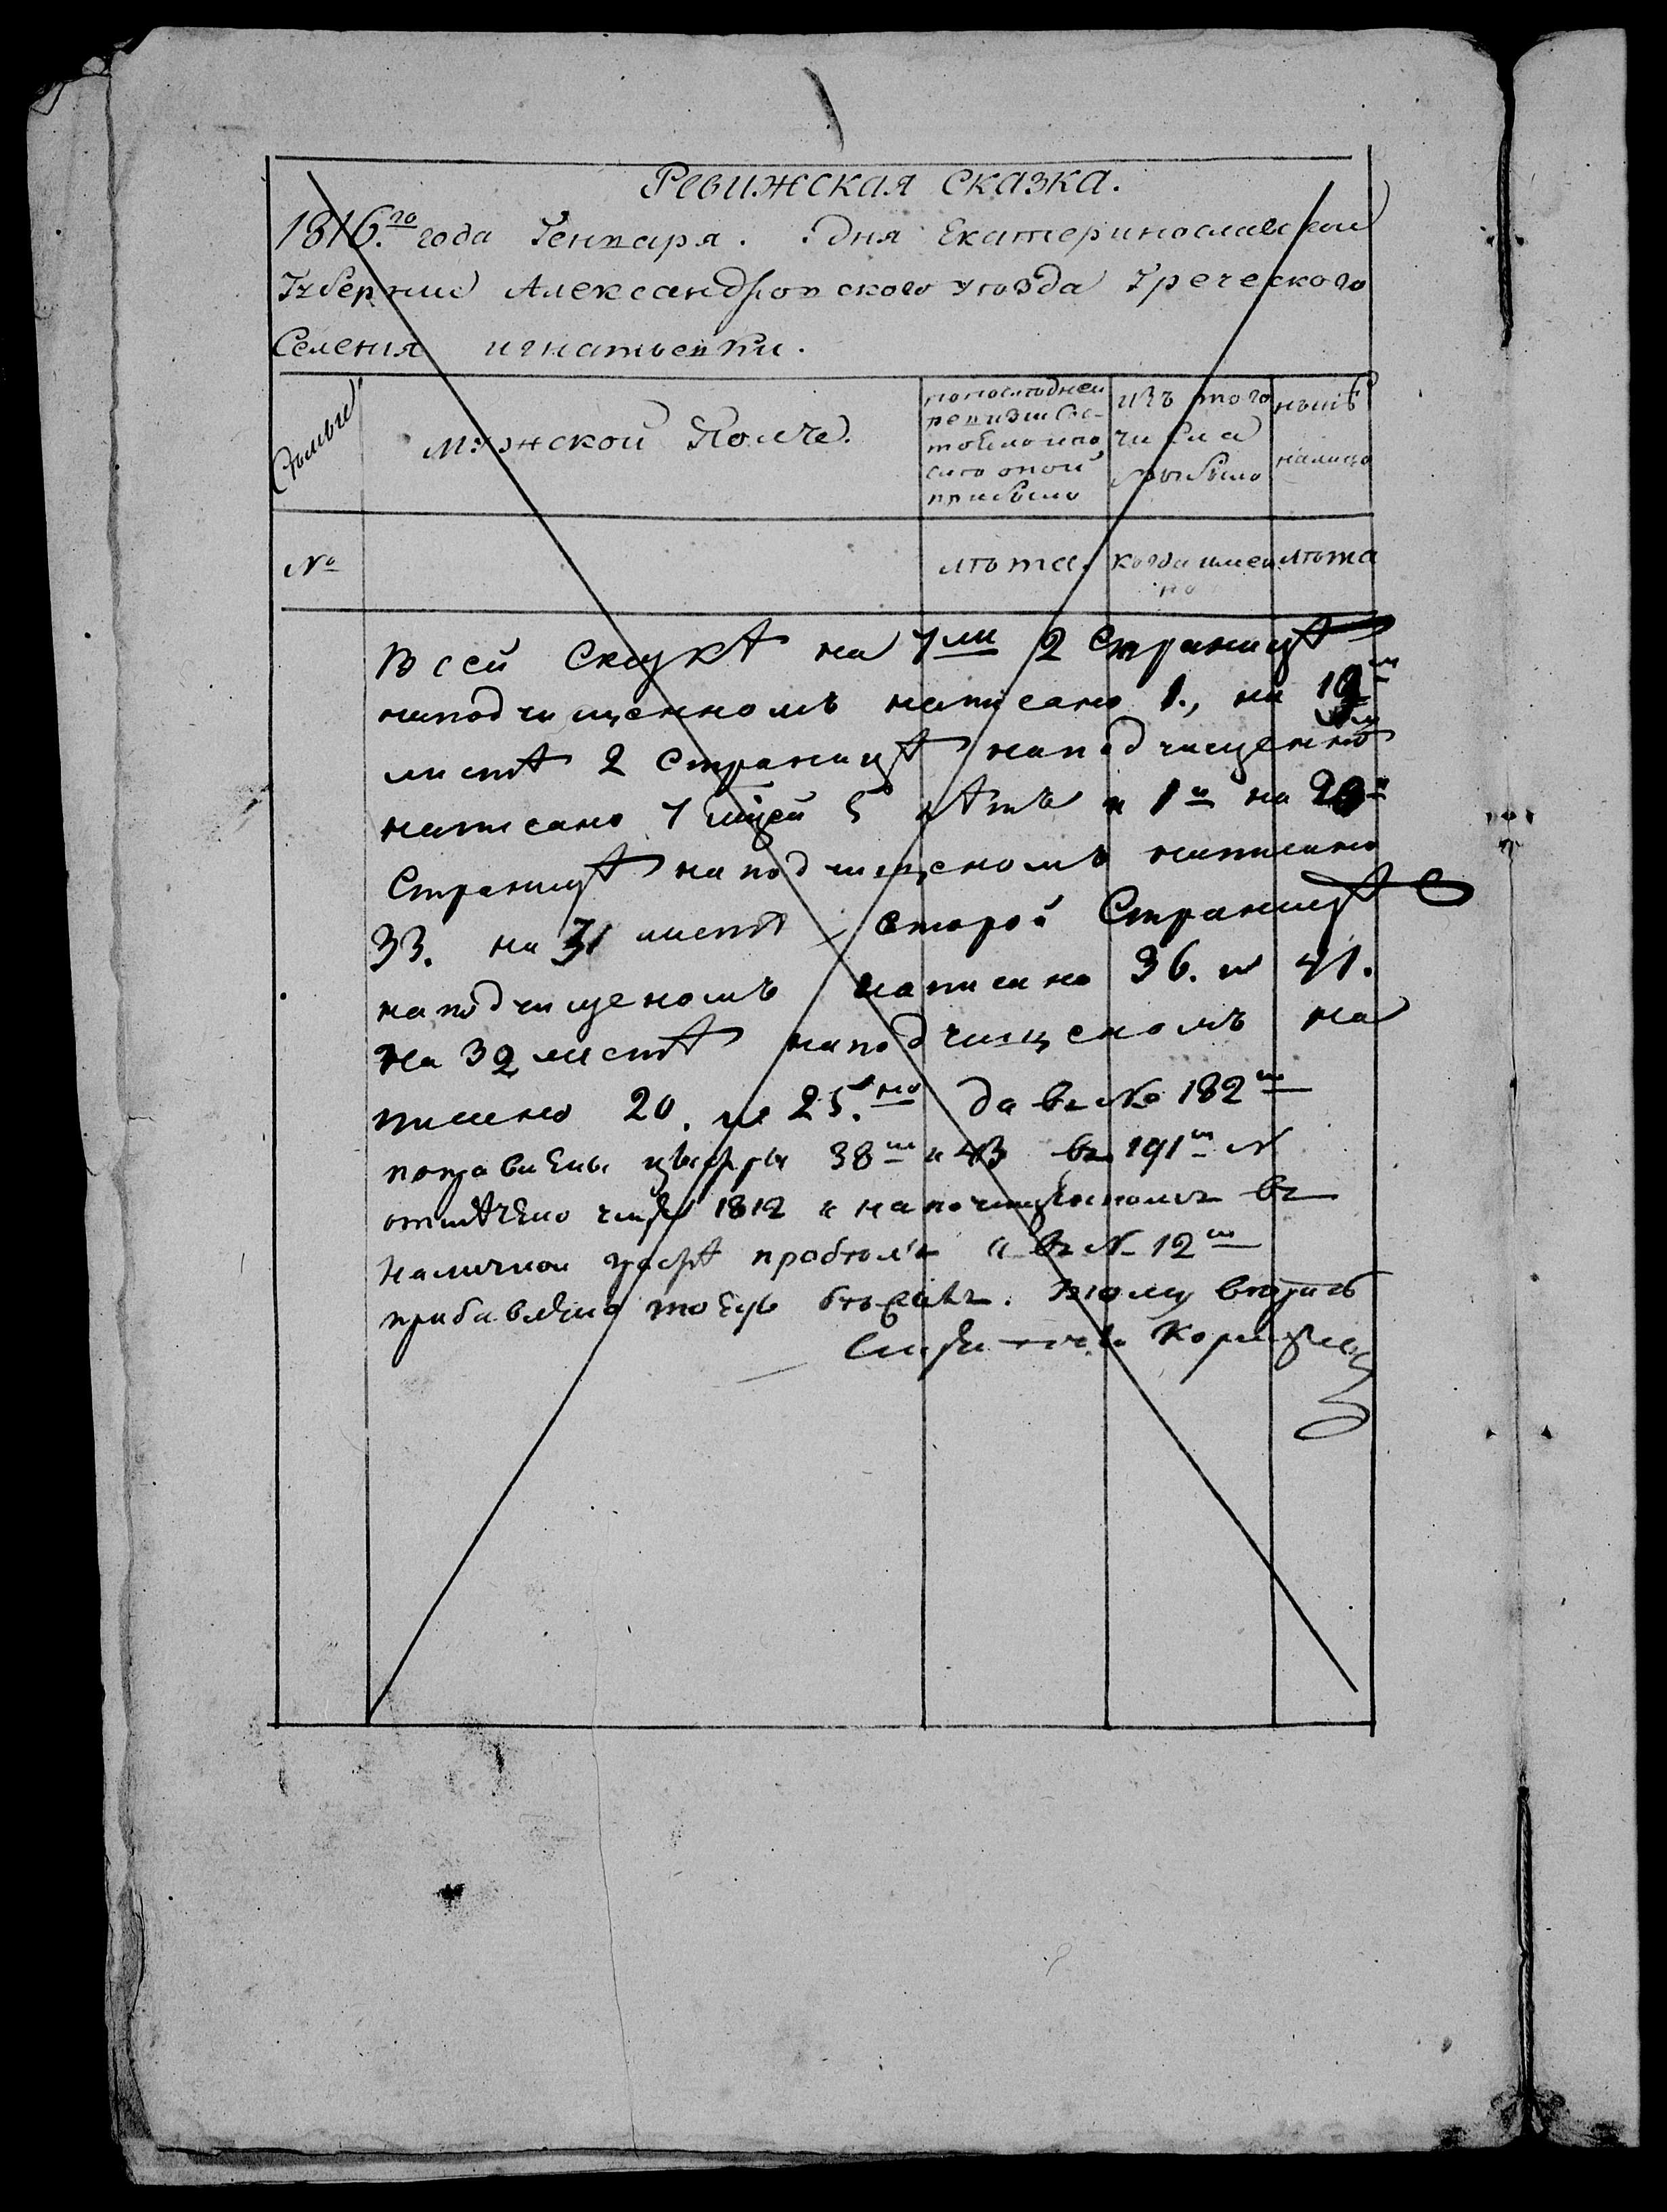 Ревижская сказка.
1816.го года Генваря . дня Екатеринославской
Губернии Александровского уѣзда Греческого
Селения игнатьевки.
Семьи
мужской Полъ.
попослѣдней
ревизии сос-
тояло и по
слѣ оной
прибыло
изъ того
числа
выбыло
нынѣ
налицо
№
лѣта.
когда имен
но
лѣта
В сей Сказкѣ на 7м 2 Страницѣ
наподчищенномъ написано 1., на 19м
листѣ 2 Страницѣ наподчищенно
написано 7 5 лѣтъ и 1и на 20й
Страницѣ наподчищеномъ написано
33. на 31 листѣ второй Страницѣ
наподчищеномъ написано 36. и 41.
на 32 листѣ наподчищеномъ на
писано 20. и 25.но да въ № 182м
поправлены цыфры 38м и 43 въ 191м №
отмѣчено 1812 и на въ
наличной графѣ пробѣлъ и въ № 12м
прибавлено